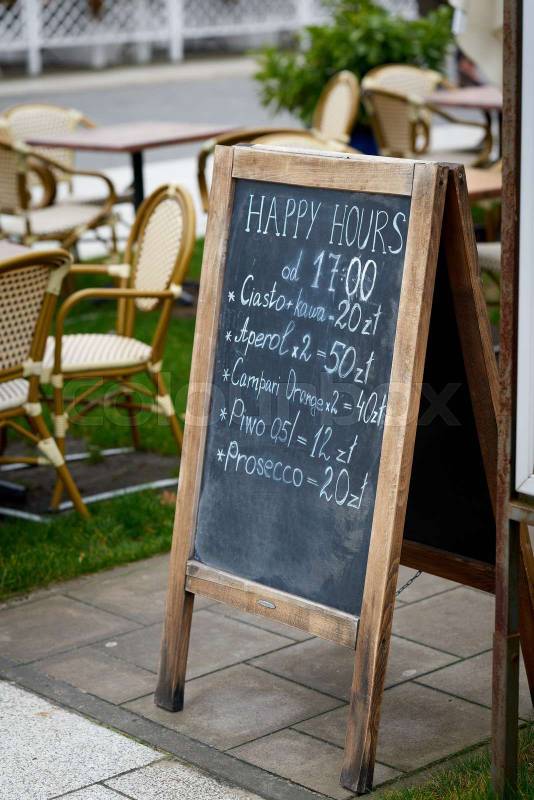 HAPPY HOURS
od 17:00
* Ciasto + kawa = 20 zł
* Aperol x 2 = 50 zł
* Campari Orange x 2 = 40 zł
* Piwo 0,5l = 12 zł
* Prosecco = 20 zł
colourbox